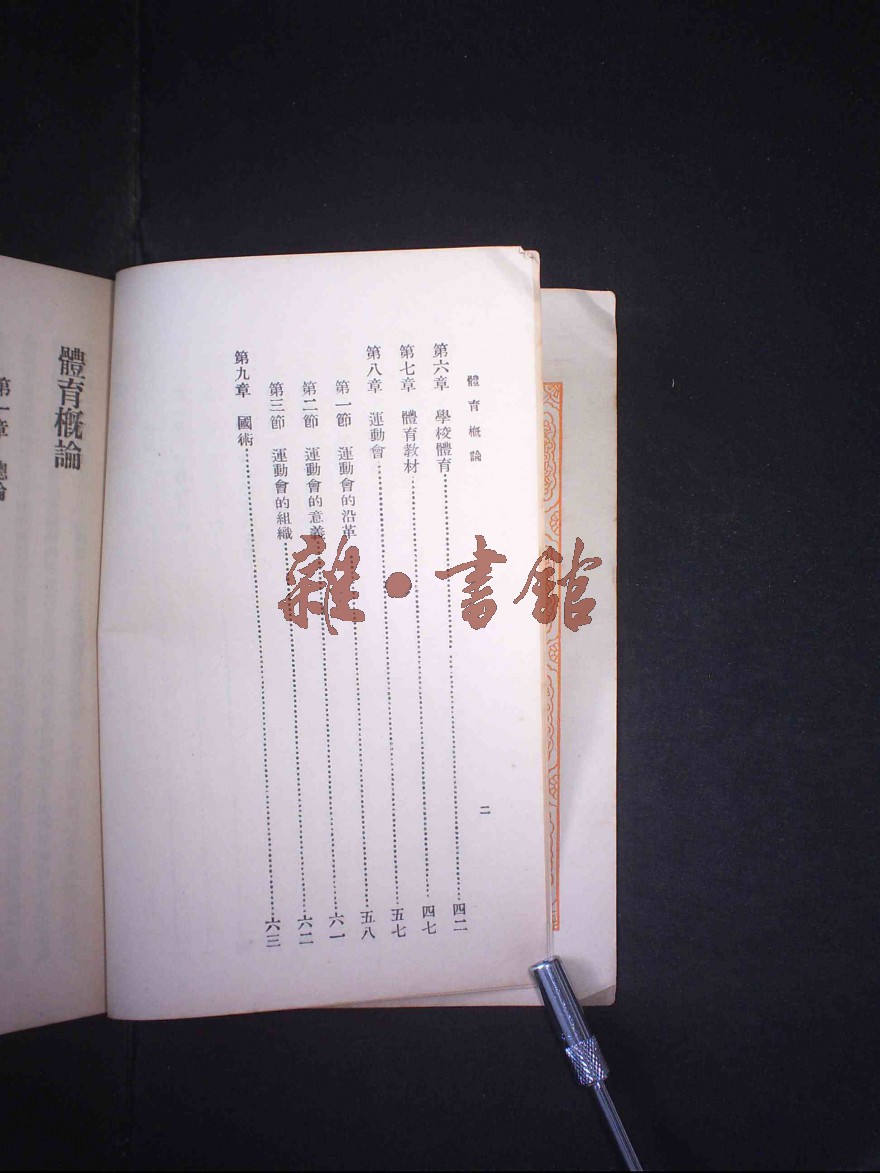 體育概論
第六章 學校體育……四二
第七章 體育教材……四七
第八章 運動會……五七
第一節 運動會的沿革……五八
第二節 運動會的意義……六一
第三節 運動會的組織……六二
第九章 國術……六三
二
體育概論
第一章 總論
雜·書館